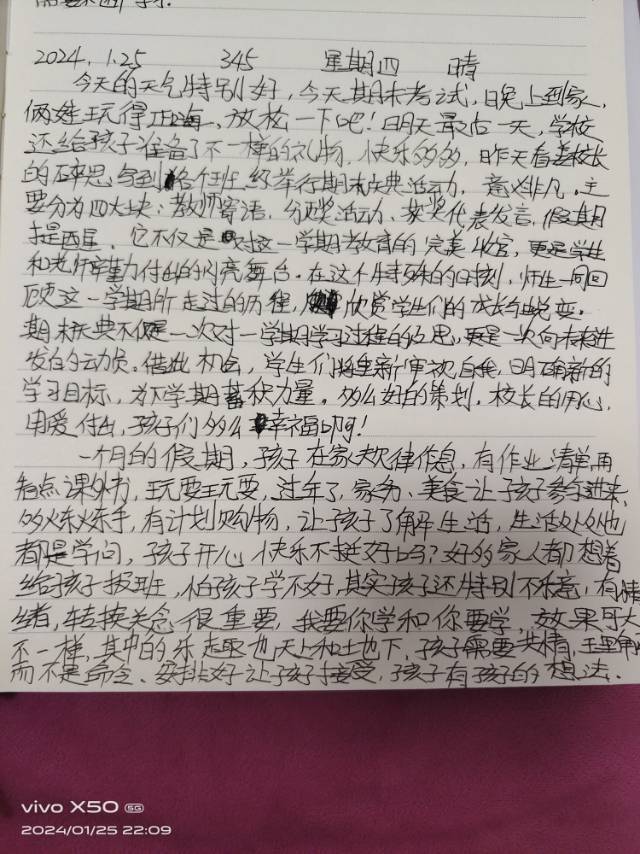 2024.1.25 345 星期四 晴
今天的天气特别好,今天期末考试,晚上到家,
俩娃玩得正嗨、放松一下吧!明天最后一天,学校
还给孩子准备了不一样的礼物,快乐多多,昨天看姜校长
的碎思,写到各个班级举行期末庆典活动,意义非凡。主
要分为四大块:教师寄语,颁奖活动、获奖代表发言,假期
指南。它不仅是对这一学期教育的完美收官,更是学生
和老师辛勤付出的闪亮舞台。在这个特殊的时刻,师生一同回
顾这一学期所走过的历程,欣赏学生们的成长与蜕变。
期末庆典不仅是一次对一学期学习过程的反思,更是一次向未来进
发的动员。借此机会,学生们将重新审视自我,明确新的
学习目标,为下学期蓄积力量。多么好的策划,校长的用心,
用爱付出,孩子们多么幸福啊!
一个月的假期,孩子在家规律作息,有作业清单,再
看点课外书,玩耍玩耍,过年了,家务、美食让孩子参与进来,
多练练手,有计划购物,让孩子了解生活,生活处处也
都是学问,孩子开心快乐不挺好吗?好的家人都想着
给孩子报班,怕孩子学不好,其实孩子还特别不乐意,有情
绪,转换关念很重要,我要你学和你要学,效果可大
不一样,其中的乐趣也天上和地下,孩子需要共情,
而不是命令、安排好让孩子接受,孩子有孩子的想法.
vivo X50 5G
2024/01/25 22:09